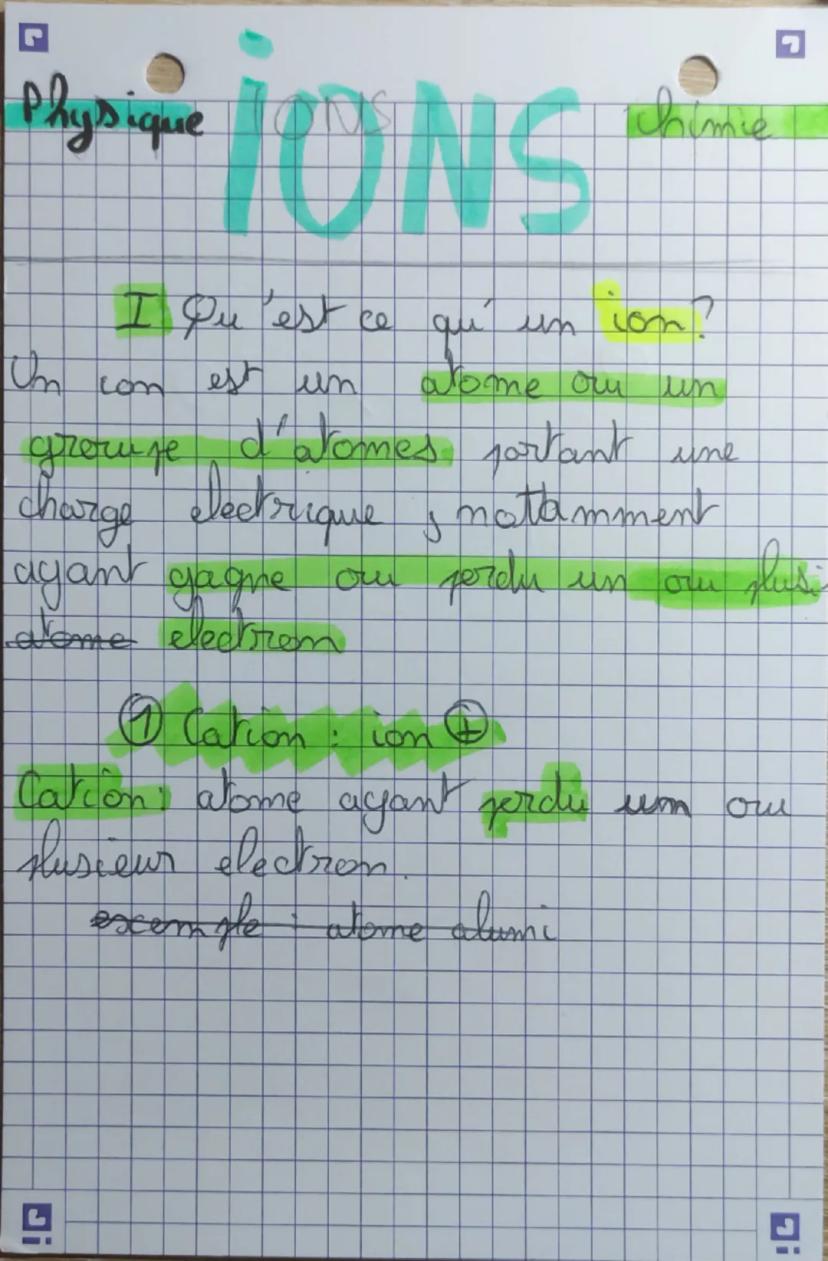 Physique
iONS
IONS
chimie
I Qu'est ce qu'un ion?
Un ion est un atome ou un
groupe d'atomes portant une
charge electrique, notamment
ayant gagne ou perdu un ou plusi
atome electron
1 Cation : ion +
Cation: atome ayant perdu um ou
plusieur electron.
exemple : atome alumi